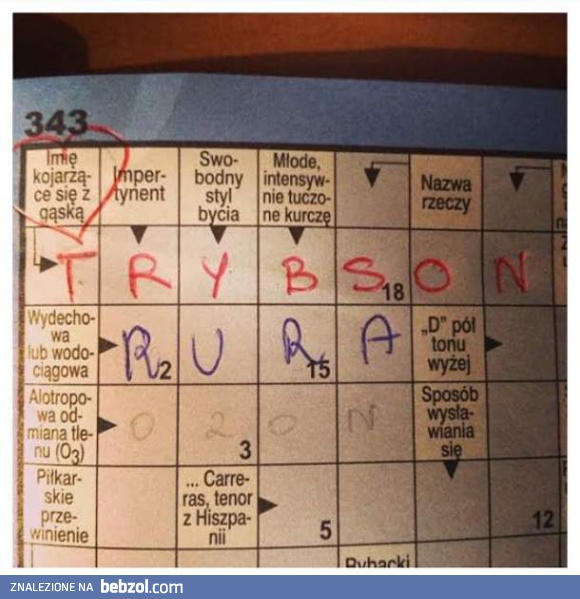 343
Imię
kojarzą-
ce się z
gąską
Imper-
tynent
Swo-
bodny
styl
bycia
Młode,
intensyw-
nie tuczo-
ne kurczę
Nazwa
rzeczy
T R Y B S O N
18
Wydecho-
wa
lub wodo-
ciągowa
R U R A
2
15
„D” pół
tonu
wyżej
Alotropo-
wa od-
miana tle-
nu (O3)
O 2 O N
3
Sposób
wysła-
wiania
się
Piłkar-
skie
prze-
winienie
... Carre-
ras, tenor
z Hiszpa-
nii
5
12
Rybacki
ZNALEZIONE NA bebzol.com